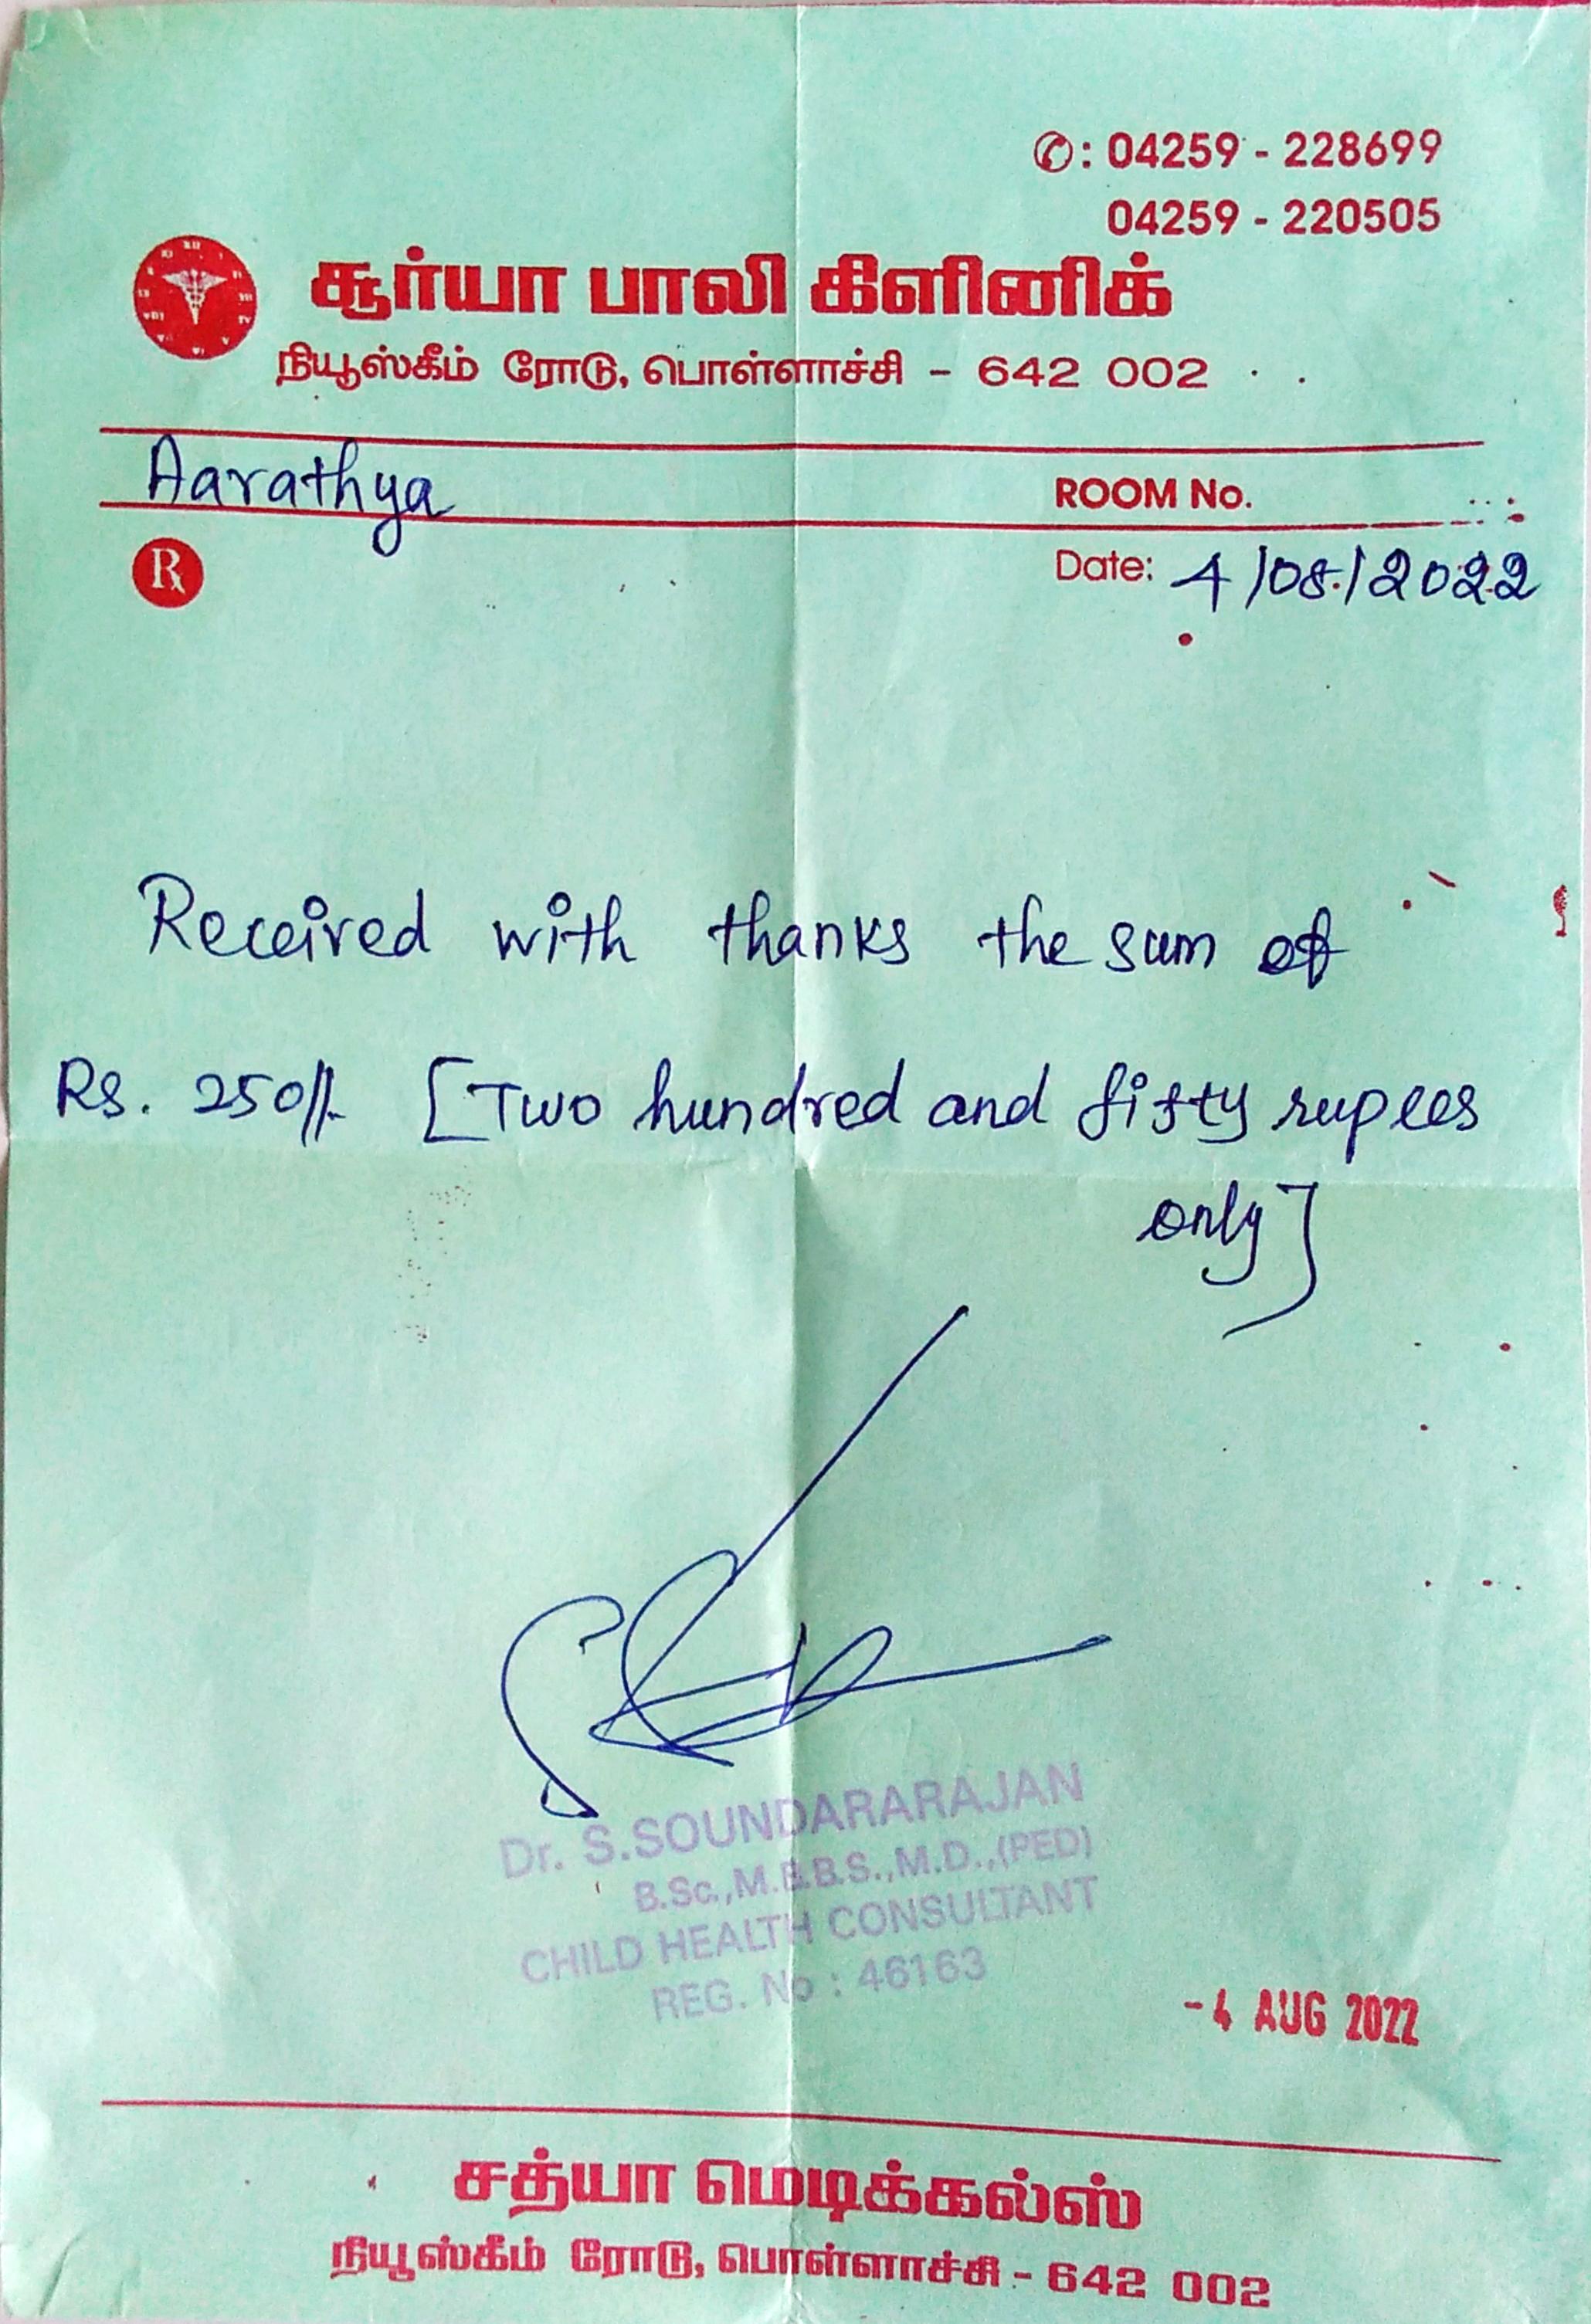 ✆: 04259 - 228699
04259 - 220505
சூர்யா பாலி கிளினிக்
நியூஸ்கீம் ரோடு, பொள்ளாச்சி - 642 002
Aarathya
ROOM No.
Rx
Date: 4/08/2022
Received with thanks the sum of
Rs. 250/- [Two hundred and fifty rupees
only]
Dr. S.SOUNDARARAJAN
B.Sc.,M.B.B.S.,M.D.,(PED)
CHILD HEALTH CONSULTANT
REG. No : 46163
-4 AUG 2022
சத்யா மெடிக்கல்ஸ்
நியூஸ்கீம் ரோடு, பொள்ளாச்சி - 642 002